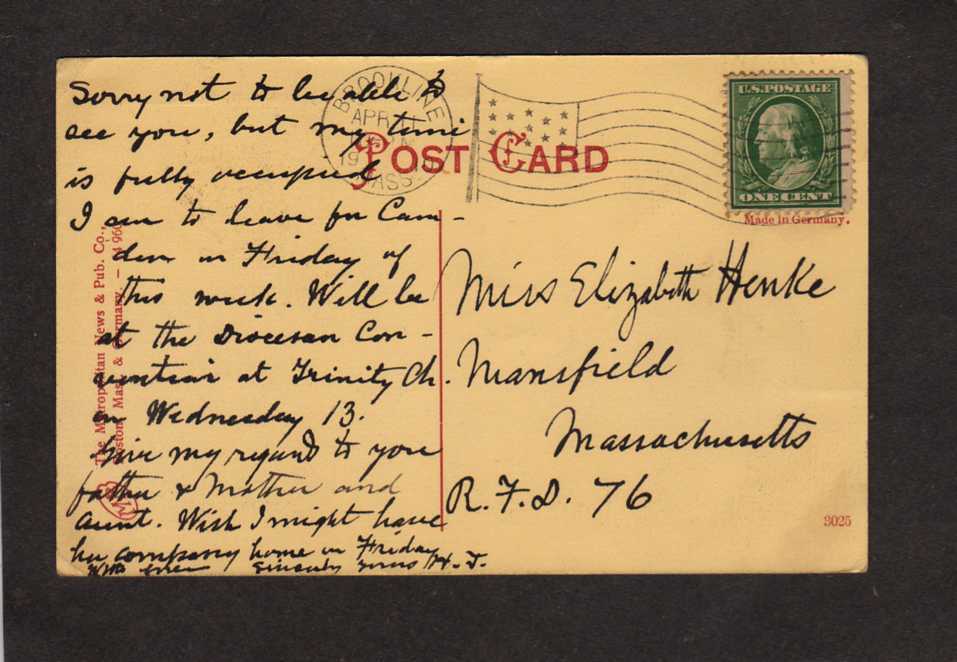 Sorry not to be able to
see you, but my time
is fully occupied
I am to leave for Cam-
den on Friday of
this week. Will be
at the Diocesan Con-
vention at Trinity Ch.
on Wednesday 13.
Give my regard to you
father & mother and
aunt. Wish I might have
her company home on Friday
Sincerely Yours
BROOKLINE
APR
MASS
POST CARD
U.S. POSTAGE
ONE CENT
Made in Germany.
Miss Elizabeth Henke
Mansfield
Massachusetts
R.F.D. 76
3025
The Metropolitan News & Pub. Co.,
Boston, Mass. & Germany. —